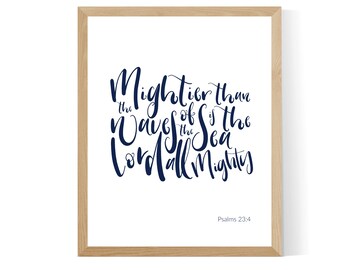 Mightier than
the Waves of is the
the Sea
Lord all Mighty
Psalms 23:4